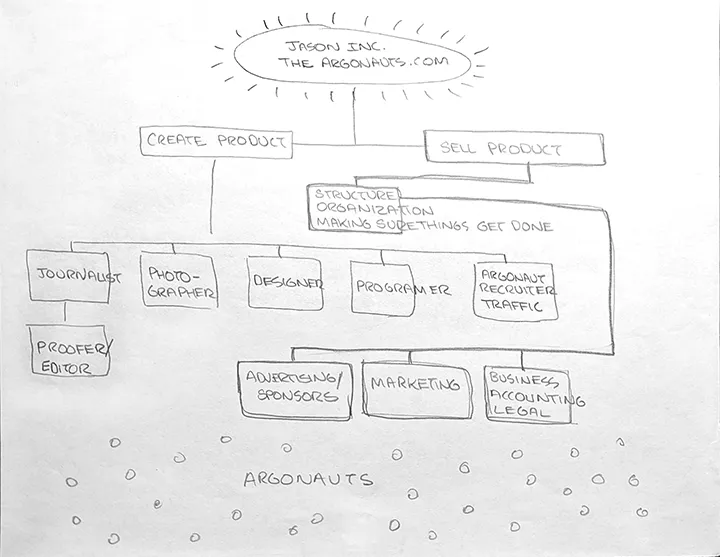 JASON INC.
THE ARGONAUTS.COM
CREATE PRODUCT
SELL PRODUCT
STRUCTURE
ORGANIZATION
MAKING SURETHINGS GET DONE
JOURNALIST
PHOTO-
GRAPHER
DESIGNER
PROGRAMER
ARGONAUT
RECRUITER
TRAFFIC
PROOFER/
EDITOR
ADVERTISING/
SPONSORS
MARKETING
BUSINESS
ACCOUNTING
LEGAL
ARGONAUTS